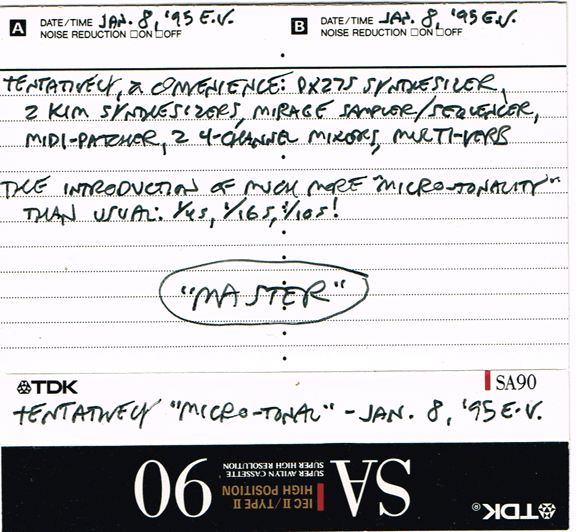 A DATE/TIME JAN. 8, '95 E.V. B DATE/TIME JAN. 8, '95 E.V.
NOISE REDUCTION □ON □OFF NOISE REDUCTION □ON □OFF
TENTATIVELY, A CONVENIENCE: DX27S SYNTHESIZER,
2 KIM SYNTHESIZERS, MIRAGE SAMPLER/SEQUENCER,
MIDI-PATCHER, 2 4-CHANNEL MIXERS, MULTI-VERB
THE INTRODUCTION OF MUCH MORE "MICRO-TONALITY"
THAN USUAL: 1/4S, 1/16S, 1/10S!
"MASTER"
TDK SA90
TENTATIVELY "MICRO-TONAL" - JAN. 8, '95 E.V.
TDK®
SA
IEC II/TYPE II
HIGH POSITION
SUPER AVILYN CASSETTE
SUPER HIGH RESOLUTION
90